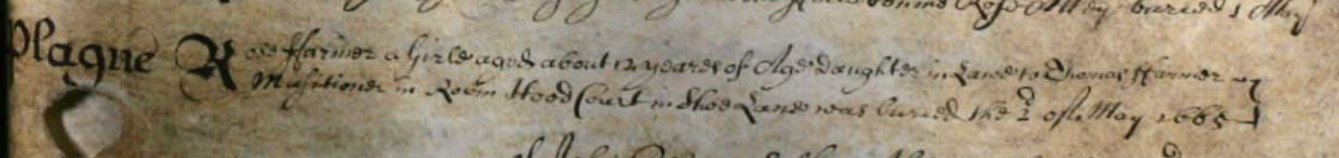 Rose Alley buried 1 May
Plague Rose ffarmer a Girle aged about 12 yeares of Age daughter in Lawe to Thomas ffarmer
Musitioner in Robin Hood Court in Shoe Lane was buried the 2d of May 1665